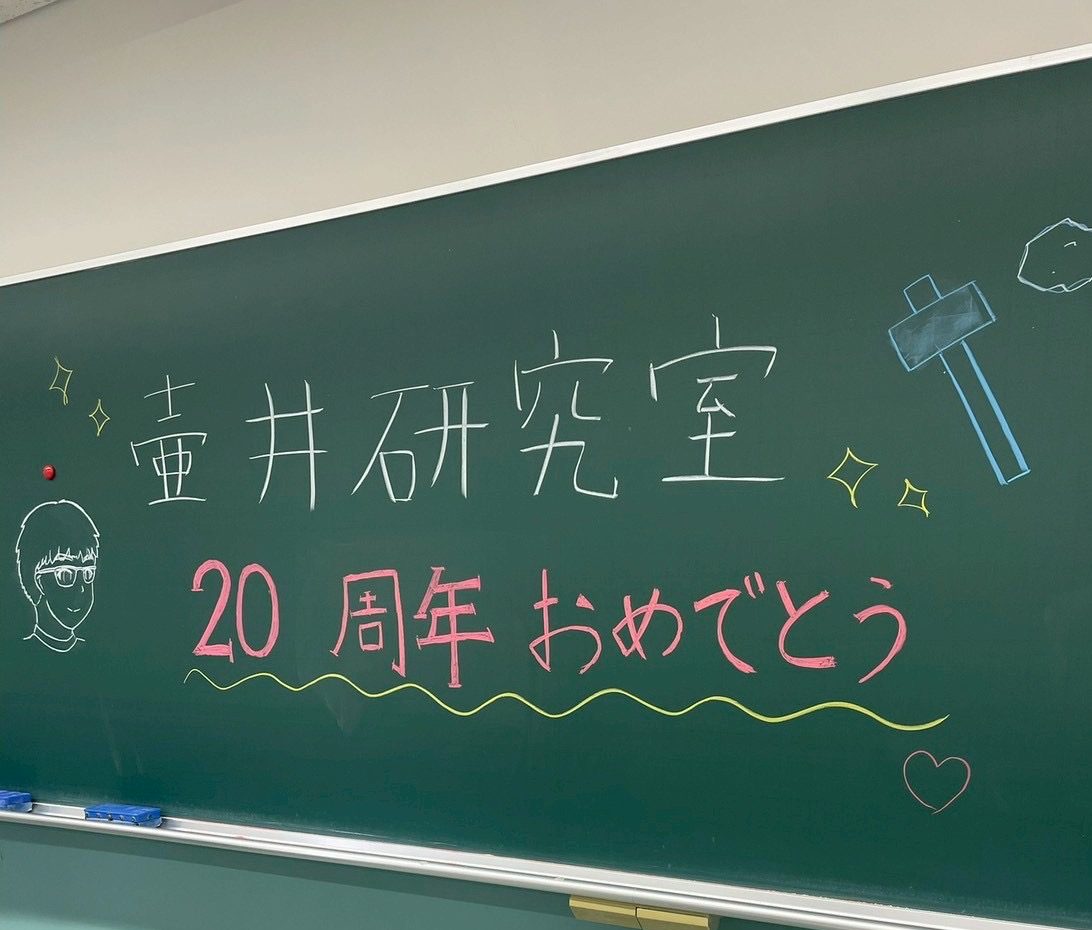 壷井研究室
20周年おめでとう